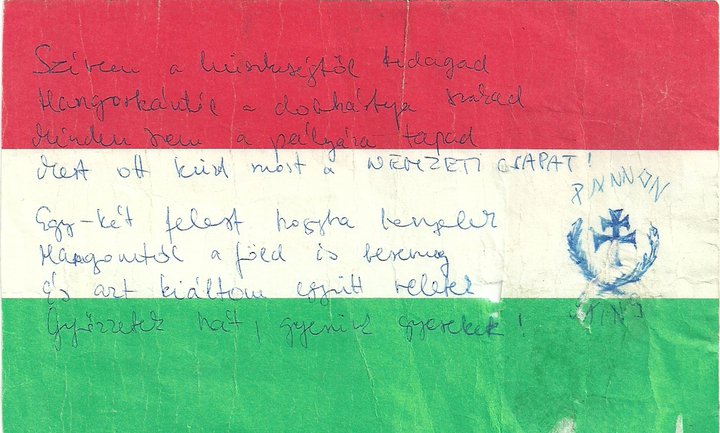 Szívem a büszkeségtől kidagad
Hangorkántól a dobhártya szakad
Minden szem a pályára tapad
Mert ott küzd most a NEMZETI CSAPAT!
PANNON
Egy-két felest hogyha benyelek
Hangomtól a föld is beremeg
És azt kiáltom együtt veletek
Győzzetek hát, gyerünk gyerekek!